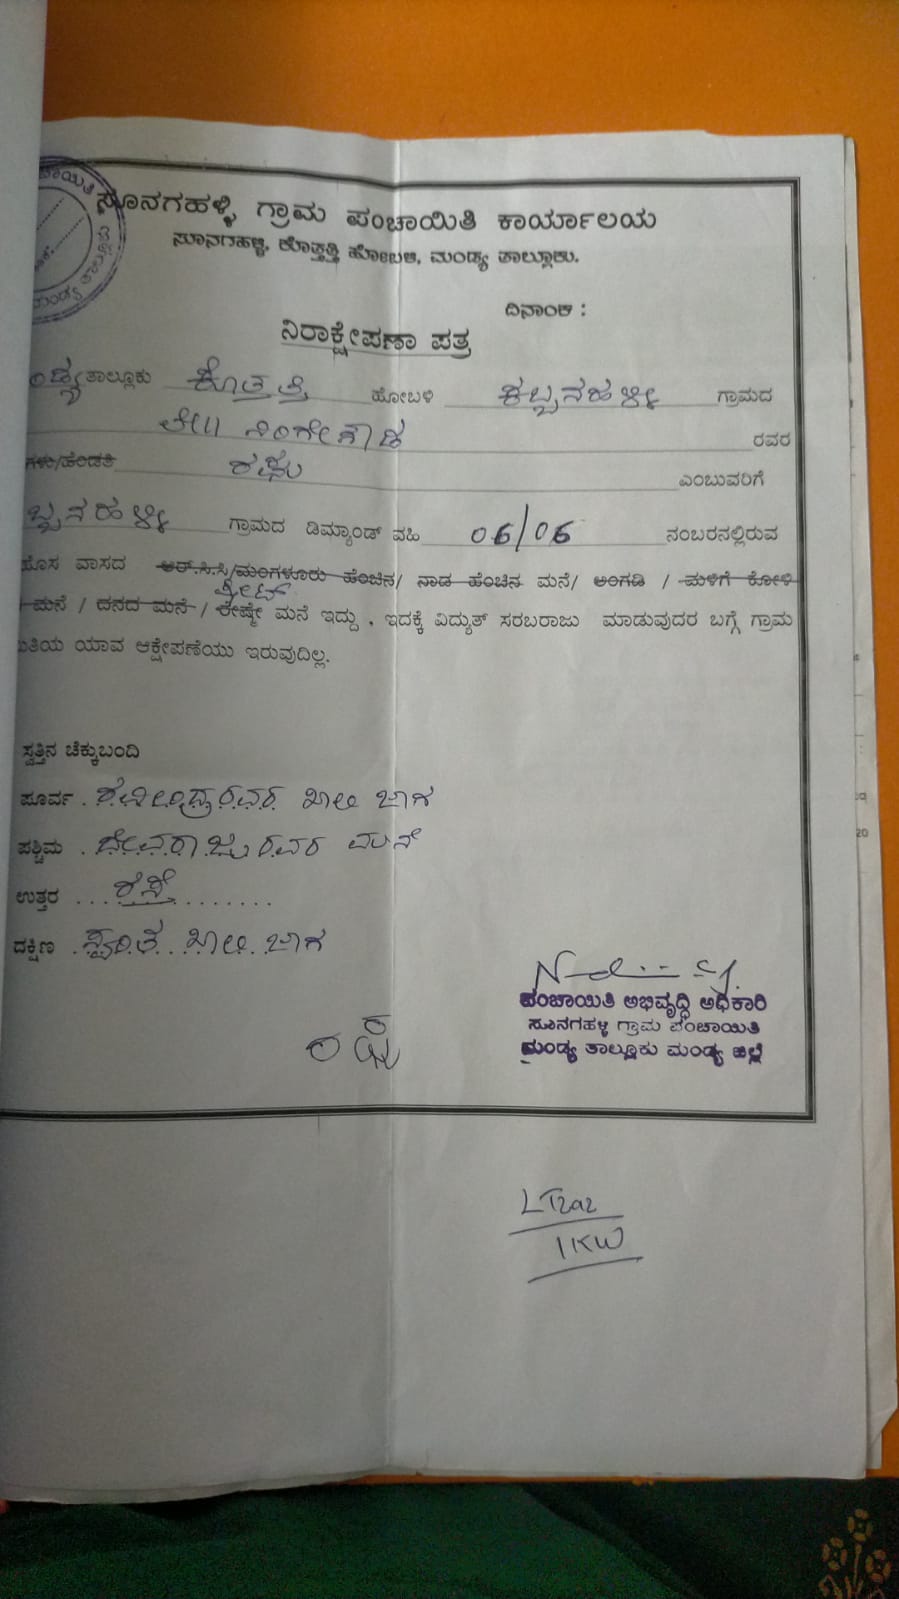 ಸೂನಗಹಳ್ಳಿ ಗ್ರಾಮ ಪಂಚಾಯಿತಿ ಕಾರ್ಯಾಲಯ
ಸೂನಗಹಳ್ಳಿ, ಕೊತ್ತತ್ತಿ ಹೋಬಳಿ, ಮಂಡ್ಯ ತಾಲ್ಲೂಕು.
ದಿನಾಂಕ :
ನಿರಾಕ್ಷೇಪಣಾ ಪತ್ರ
ಂಡ್ಯ ತಾಲ್ಲೂಕು ಕೊತ್ತತ್ತಿ ಹೋಬಳಿ ಕಬ್ಬನಹಳ್ಳಿ ಗ್ರಾಮದ
ಲೇ|| ನಿಂಗೇಗೌಡ ರವರ
ಗಳು/ಹೆಂಡತಿ ಎಂಬುವರಿಗೆ
ಬ್ಬನಹಳ್ಳಿ ಗ್ರಾಮದ ಡಿಮ್ಯಾಂಡ್ ವಹಿ 06/06 ನಂಬರನಲ್ಲಿರುವ
ಹೊಸ ವಾಸದ ಆರ್.ಸಿ.ಸಿ/ಮಂಗಳೂರು ಹೆಂಚಿನ/ ನಾಡ ಹೆಂಚಿನ ಮನೆ/ ಅಂಗಡಿ / ಮಳಿಗೆ ಕೋಳಿ
ಶೀಟ್
ಮನೆ / ದನದ ಮನೆ / ರೇಷ್ಮೇ ಮನೆ ಇದ್ದು, ಇದಕ್ಕೆ ವಿದ್ಯುತ್ ಸರಬರಾಜು ಮಾಡುವುದರ ಬಗ್ಗೆ ಗ್ರಾಮ
ತಿಯ ಯಾವ ಆಕ್ಷೇಪಣೆಯು ಇರುವುದಿಲ್ಲ.
ಸ್ವತ್ತಿನ ಚೆಕ್ಕುಬಂದಿ
ಪೂರ್ವ . ಖಾಲಿ ಜಾಗ
ಪಶ್ಚಿಮ . ದೇವರಾಜುರವರ ಮನೆ
ಉತ್ತರ . ರಸ್ತೆ
ದಕ್ಷಿಣ . ಸ್ವಂತ ಖಾಲಿ ಜಾಗ
ಪಂಚಾಯಿತಿ ಅಭಿವೃದ್ಧಿ ಅಧಿಕಾರಿ
ಸೂನಗಹಳ್ಳಿ ಗ್ರಾಮ ಪಂಚಾಯಿತಿ
ಮಂಡ್ಯ ತಾಲ್ಲೂಕು ಮಂಡ್ಯ ಜಿಲ್ಲೆ
1KW